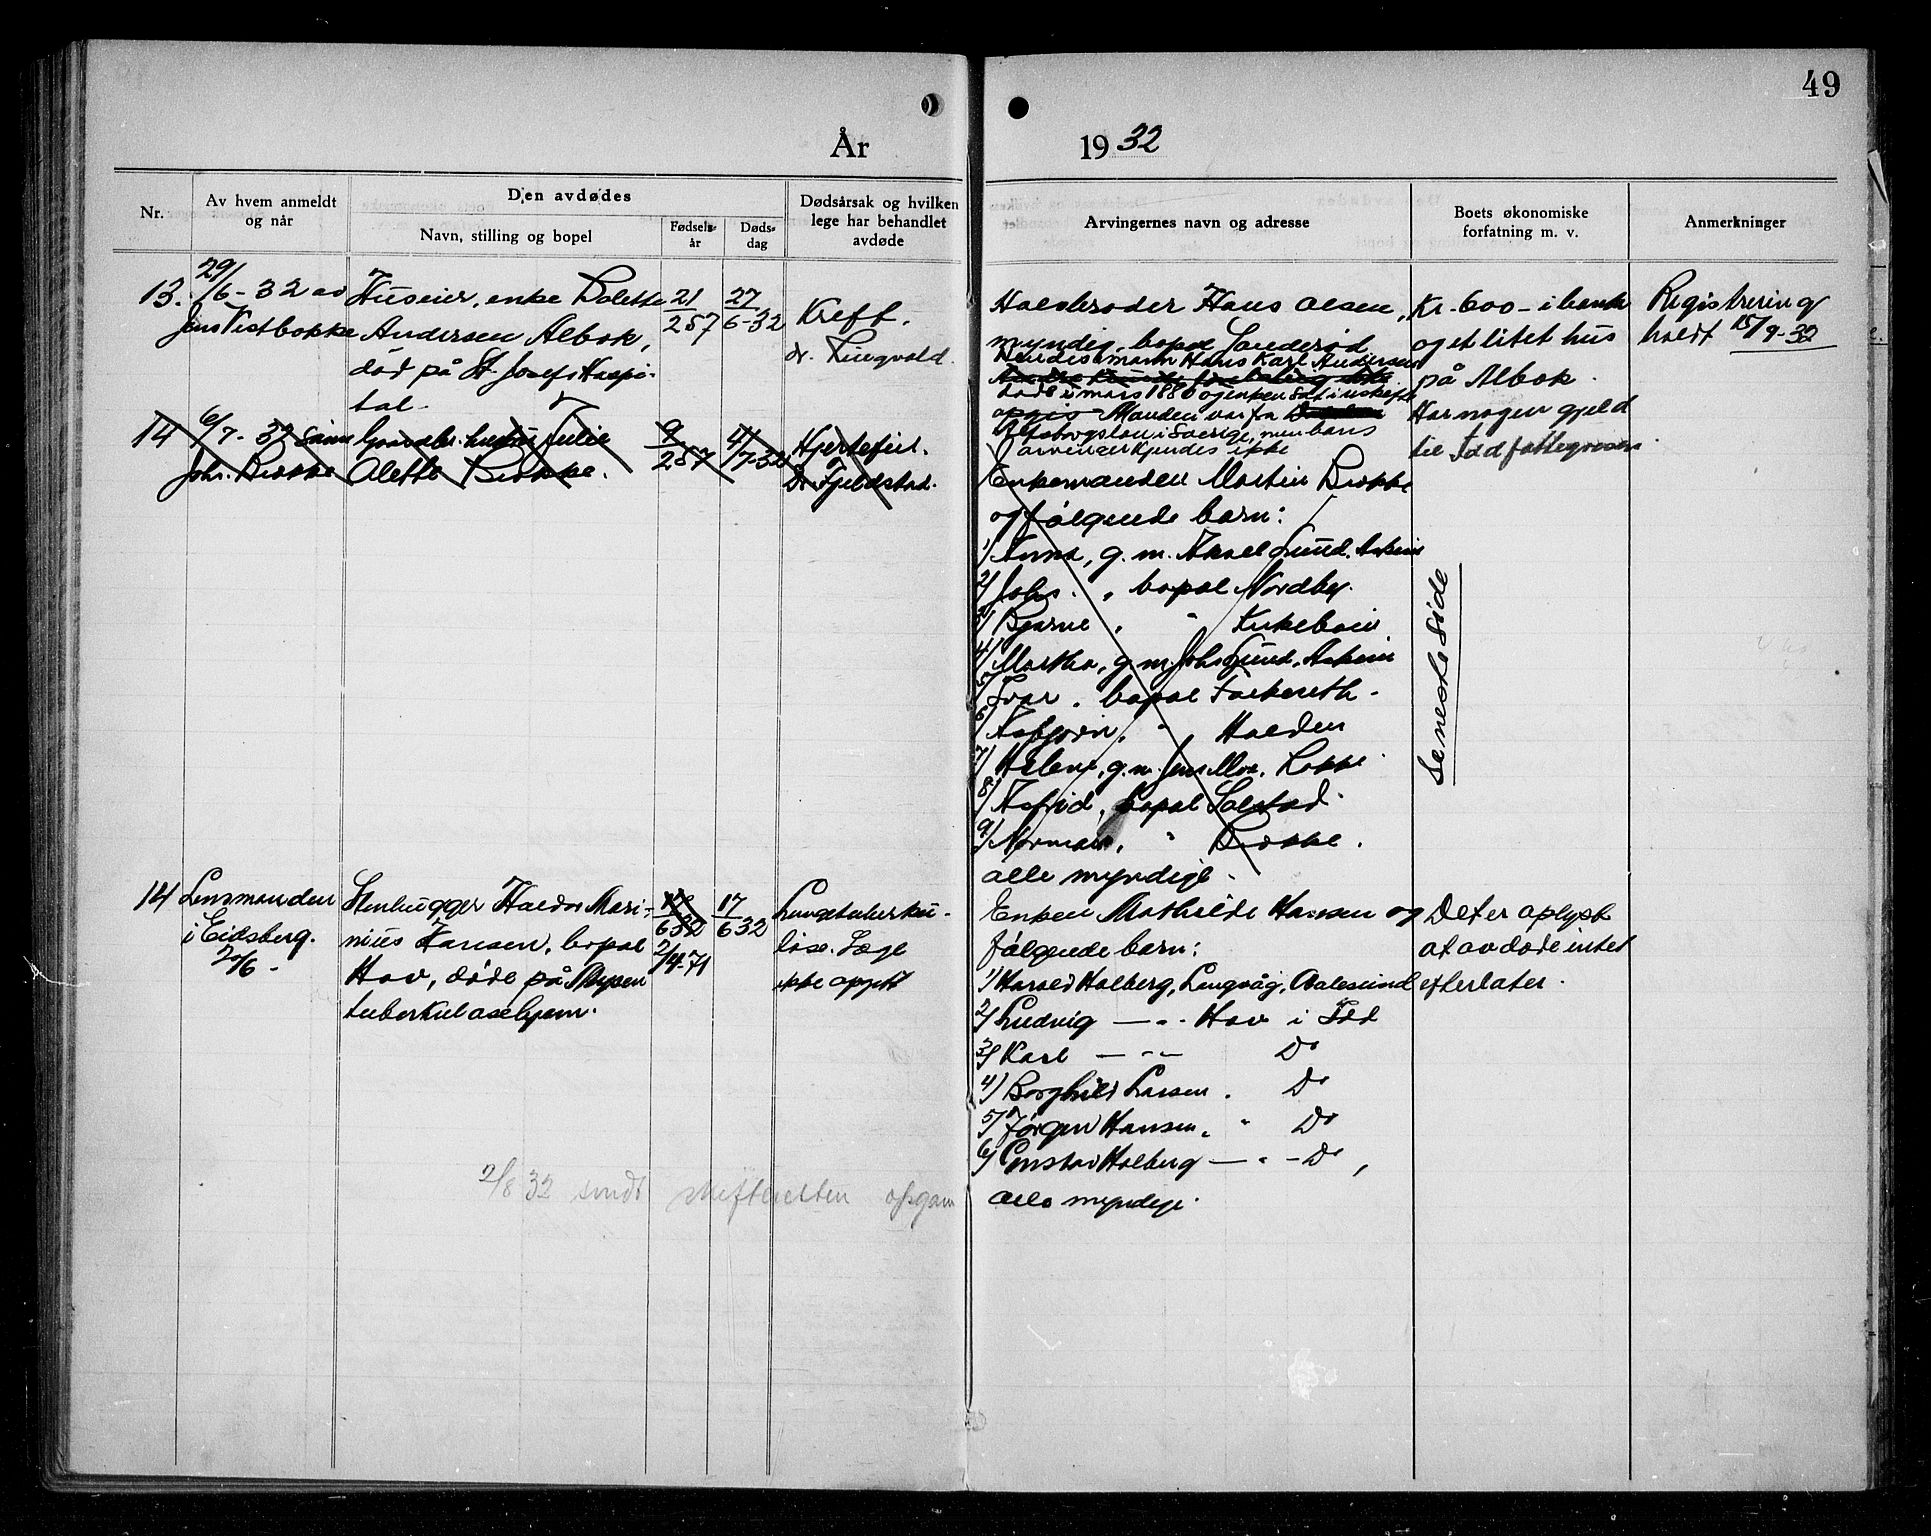 49
År 1932
Nr.
Av hvem anmeldt
og når
Den avdødes
Navn, stilling og bopel
Fødsels-
år
Døds-
dag
Dødsårsak og hvilken
lege har behandlet
avdøde
Arvingernes navn og adresse
Boets økonomiske
forfatning m. v.
Anmerkninger
13.
29/6-32 av
Jens Vestbokke
Huseier, enke Bolette
Andersen Albok,
død på St. Josefs Hospi-
tal.
21/2 57
27/6-32
Kreft.
dr. Lingvold.
Halvbroder Hans Olsen,
myndig, bopel Sanderød
Hendes mann Hans Karl Andersen
døde i mars 1880 og enken sat i uskifte
Manden var fra
Elfsborgslen i Sverige, men hans
arvinger kjendes ikke
Kr. 600 - i bank
og et litet hus
på Albok.
Har nogen gjeld
til Idd fattigvesen.
Registrering
holdt 15/9-32
14
6/7-32 sønn
Joh. Brokke
Gaardbr. hustru Julie
Alette Brokke.
9/2 57
4/7-32
Hjertefeil.
Dr. Fjeldstad.
Enkemanden Martin Brokke
og følgende barn:
1/ Anna, g. m. Aksel Lund, Askim
2/ Johs. , bopel Nordby.
3/ Bjarne , " Kirkebøen
4/ Martha, g. m. Johs Lund, Askim
5/ Ivar , bopel Torkerseth.
6/ Asbjørn, " Halden
7/ Helene, g. m. Jens Moe, Løkke
8/ Astrid, bopel Solstad.
9/ Norman, " Brokke.
alle myndige.
Se neste side
14
Lensmanden
i Eidsberg.
20/6 -
Stenhugger Haldor Mari-
nius Hansen, bopel
Hov, døde på Mysen
tuberkulosehjem.
17/6 32
2/4-71
17/6 32
Lungetuberku-
lose. Læge
ikke opgitt
Enken Mathilde Hansen og
følgende barn:
1/ Harald Holberg, Langvåg, Aalesund
2/ Ludvig — " - Hov i Idd
3/ Karl — " — Do
4/ Borghild Larsen . Do
5/ Jørgen Hansen, " Do
6/ Gustav Holberg — " - Do,
alle myndige.
Det er oplyst
at avdøde intet
efterlater.
2/8 32 sendt skifteretten opgave